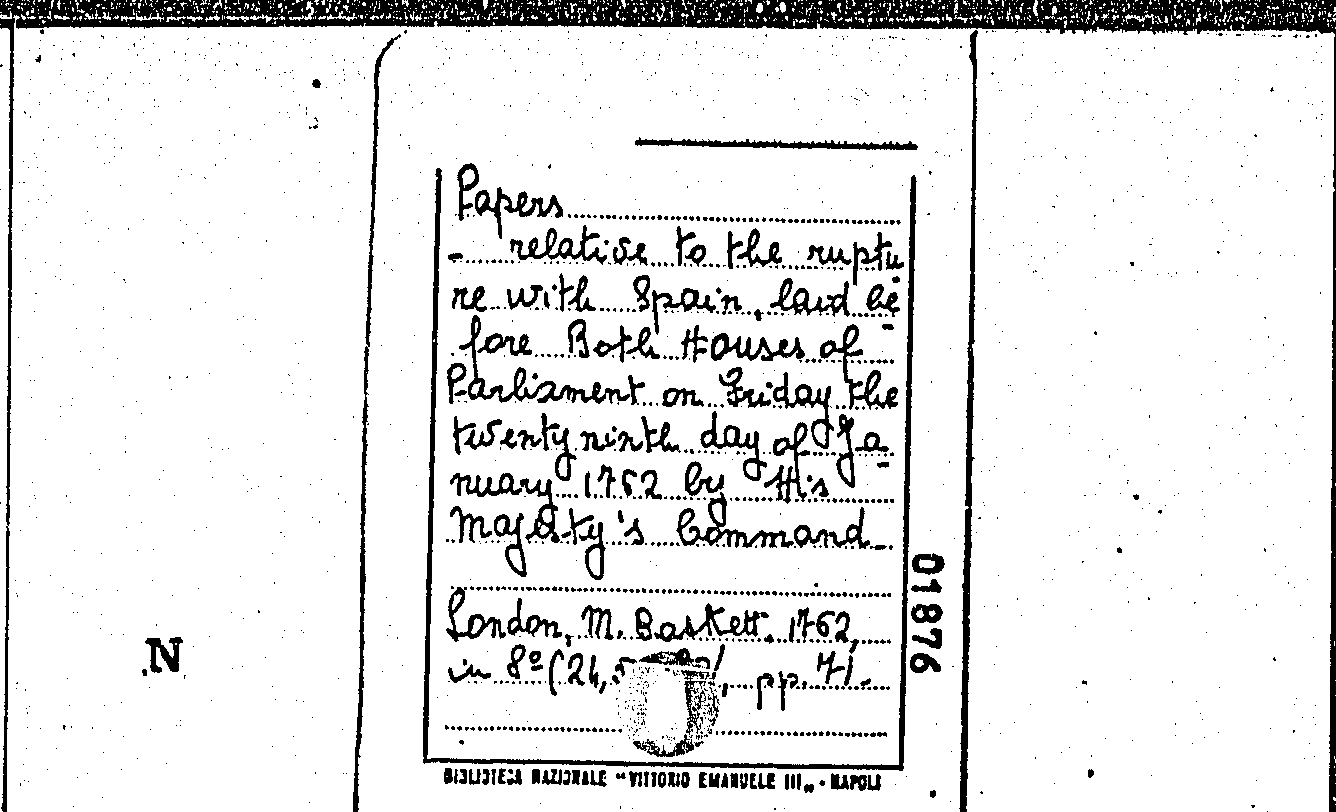 Papers
- relative to the ruptu
re with Spain, laid be
fore Both Houses of
Parliament on Friday the
twenty ninth day of Ja
nuary 1762 by His
Majesty's Command
London, M. Baskett, 1762,
in 8º (24, pp. 71.
01876
N
BIBLIOTECA NAZIONALE "VITTORIO EMANUELE III„ - NAPOLI